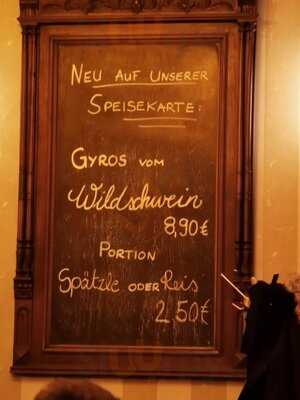 NEU AUF UNSERER
SPEISEKARTE:
GYROS VOM
Wildschwein
8,90€
PORTION
Spätzle ODER Reis
2.50€